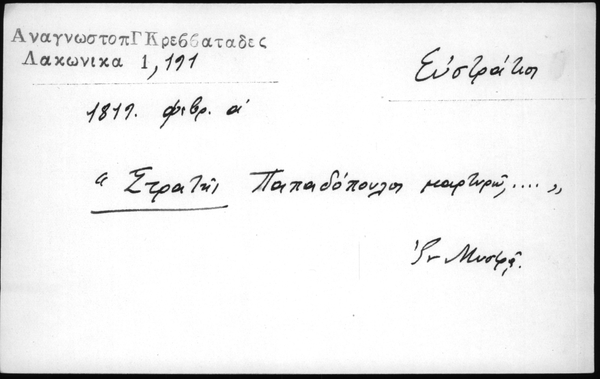 ΑναγνωστοπΓΚρεββαταδες
Λακωνικα 1,191
Εὐστράτιος
1819. φεβρ. α'
"Στρατῆς Παπαδόπουλος μαρτυρῶ,....„
Ἐν Μυστρᾷ.